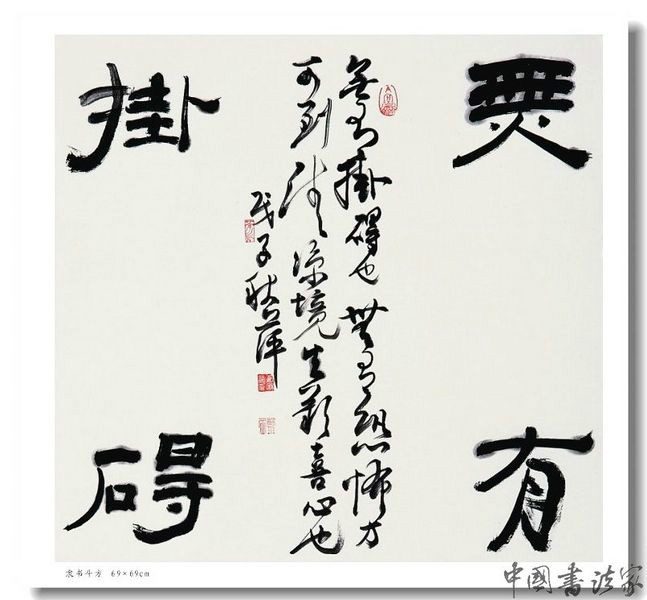 無有
掛碍
無有掛碍也無有恐怖方
可到清凉境生歡喜心也
戊子秋萍
隶书斗方 69×69cm
中國書法家